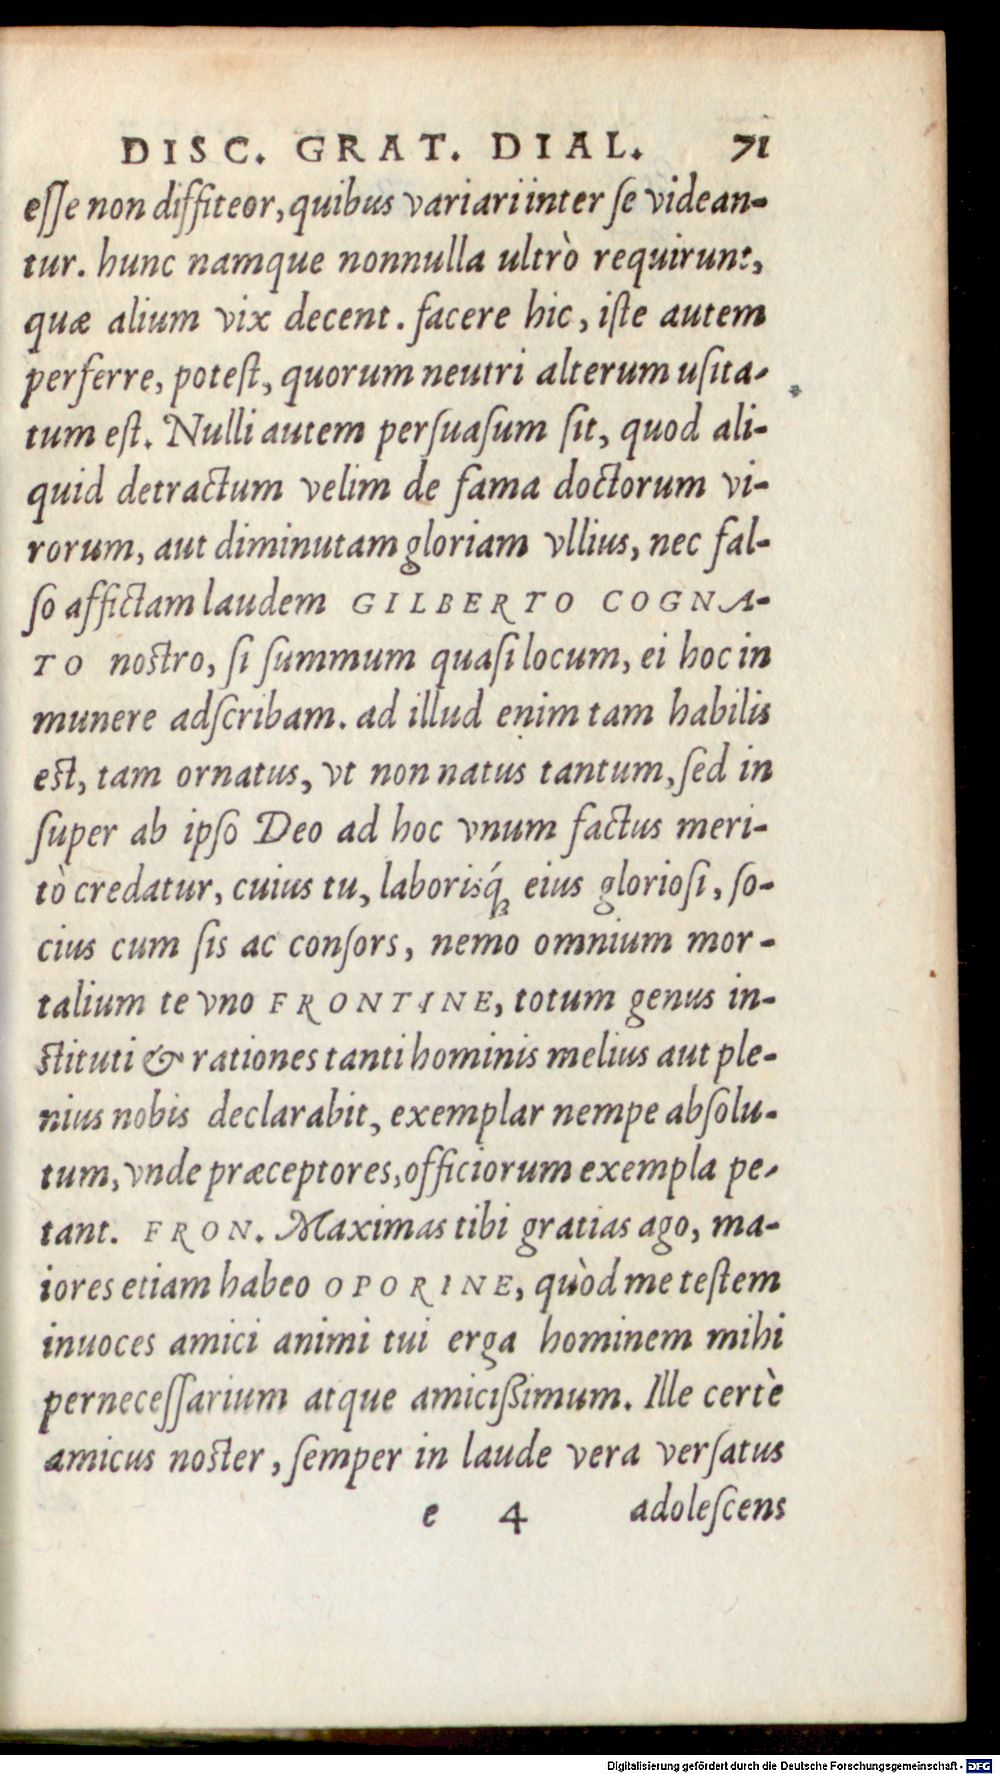 DISC. GRAT. DIAL. 71
eſſe non diffiteor, quibus variari inter ſe videan-
tur. hunc namque nonnulla ultrò requirunt,
quæ alium vix decent. facere hic, iſte autem
perferre, poteſt, quorum neutri alterum uſita-
tum eſt. Nulli autem perſuaſum ſit, quod ali-
quid detractum velim de fama doctorum vi-
rorum, aut diminutam gloriam vllius, nec fal-
ſo affictam laudem GILBERTO COGNA-
TO noſtro, ſi ſummum quaſi locum, ei hoc in
munere adſcribam. ad illud enim tam habilis
eſt, tam ornatus, vt non natus tantum, ſed in
ſuper ab ipſo Deo ad hoc vnum factus meri-
tò credatur, cuius tu, laborisq́ꝫ eius glorioſi, ſo-
cius cum ſis ac conſors, nemo omnium mor-
talium te vno FRONTINE, totum genus in-
ſtituti & rationes tanti hominis melius aut ple-
nius nobis declarabit, exemplar nempe abſolu-
tum, vnde præceptores, officiorum exempla pe-
tant. FRON. Maximas tibi gratias ago, ma-
iores etiam habeo OPORINE, quòd me teſtem
inuoces amici animi tui erga hominem mihi
perneceſſarium atque amicißimum. Ille certè
amicus noſter, ſemper in laude vera verſatus
e 4 adoleſcens
Digitalisierung gefördert durch die Deutsche Forschungsgemeinschaft - DFG